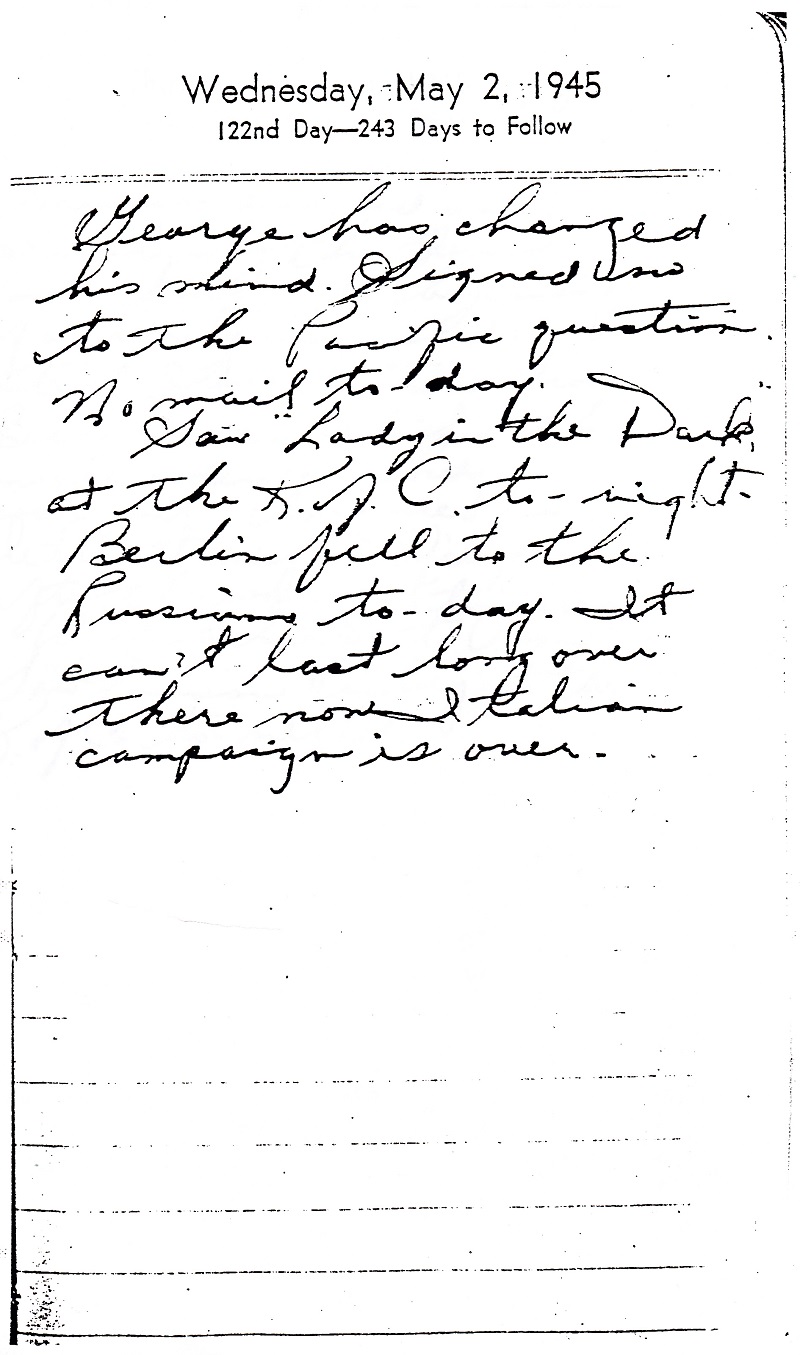 Wednesday, May 2, 1945
122nd Day—243 Days to Follow
George has changed
his mind. Signed no
to the Pacific question.
No mail to-day.
Saw "Lady in the Dark"
at the K. of C. to-night.
Berlin fell to the
Russians to-day. It
can't last long over
there now. Italian
campaign is over.